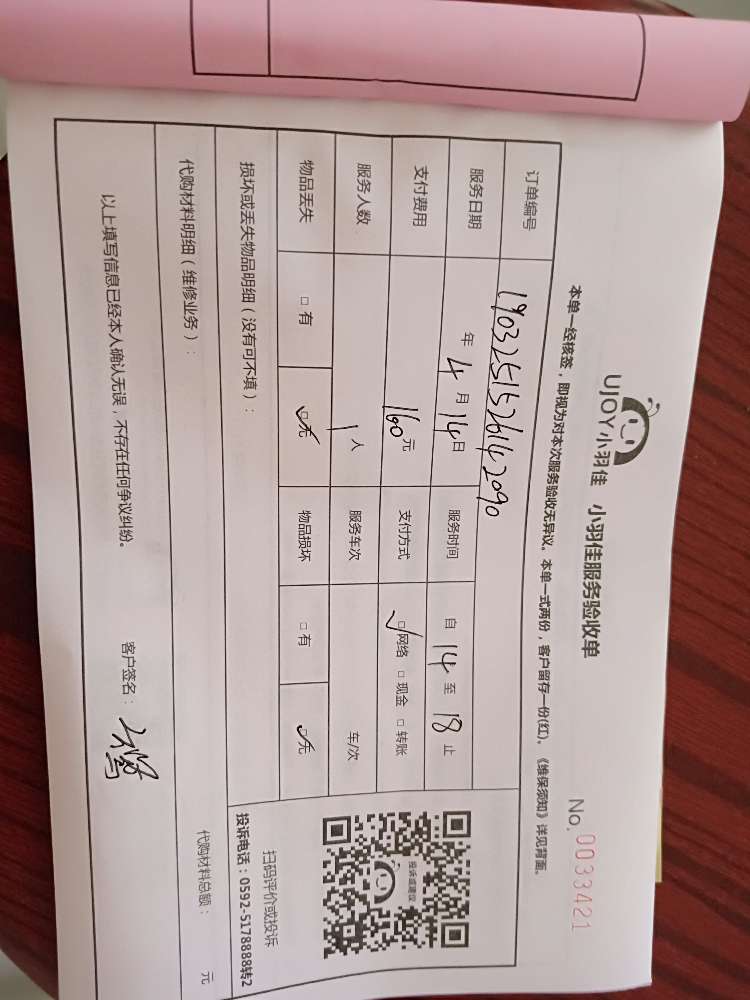 UJOY小羽佳 小羽佳服务验收单
No. 0033421
本单一经核签，即视为对本次服务验收无异议。本单一式两份，客户留存一份(红)。《维保须知》详见背面。
订单编号 190325152614 2090
服务日期 年 4 月 14 日 服务时间 自 14 至 18 止
支付费用 160 元 支付方式 □网络 □现金 □转账
服务人数 1 人 服务车次 车/次
物品丢失 □有 □无 物品损坏 □有 □无
投诉或建议
扫码评价或投诉
投诉电话：0592-5178888转2
损坏或丢失物品明细（没有可不填）：
代购材料明细（维修业务）： 代购材料总额： 元
以上填写信息已经本人确认无误，不存在任何争议纠纷。 客户签名：